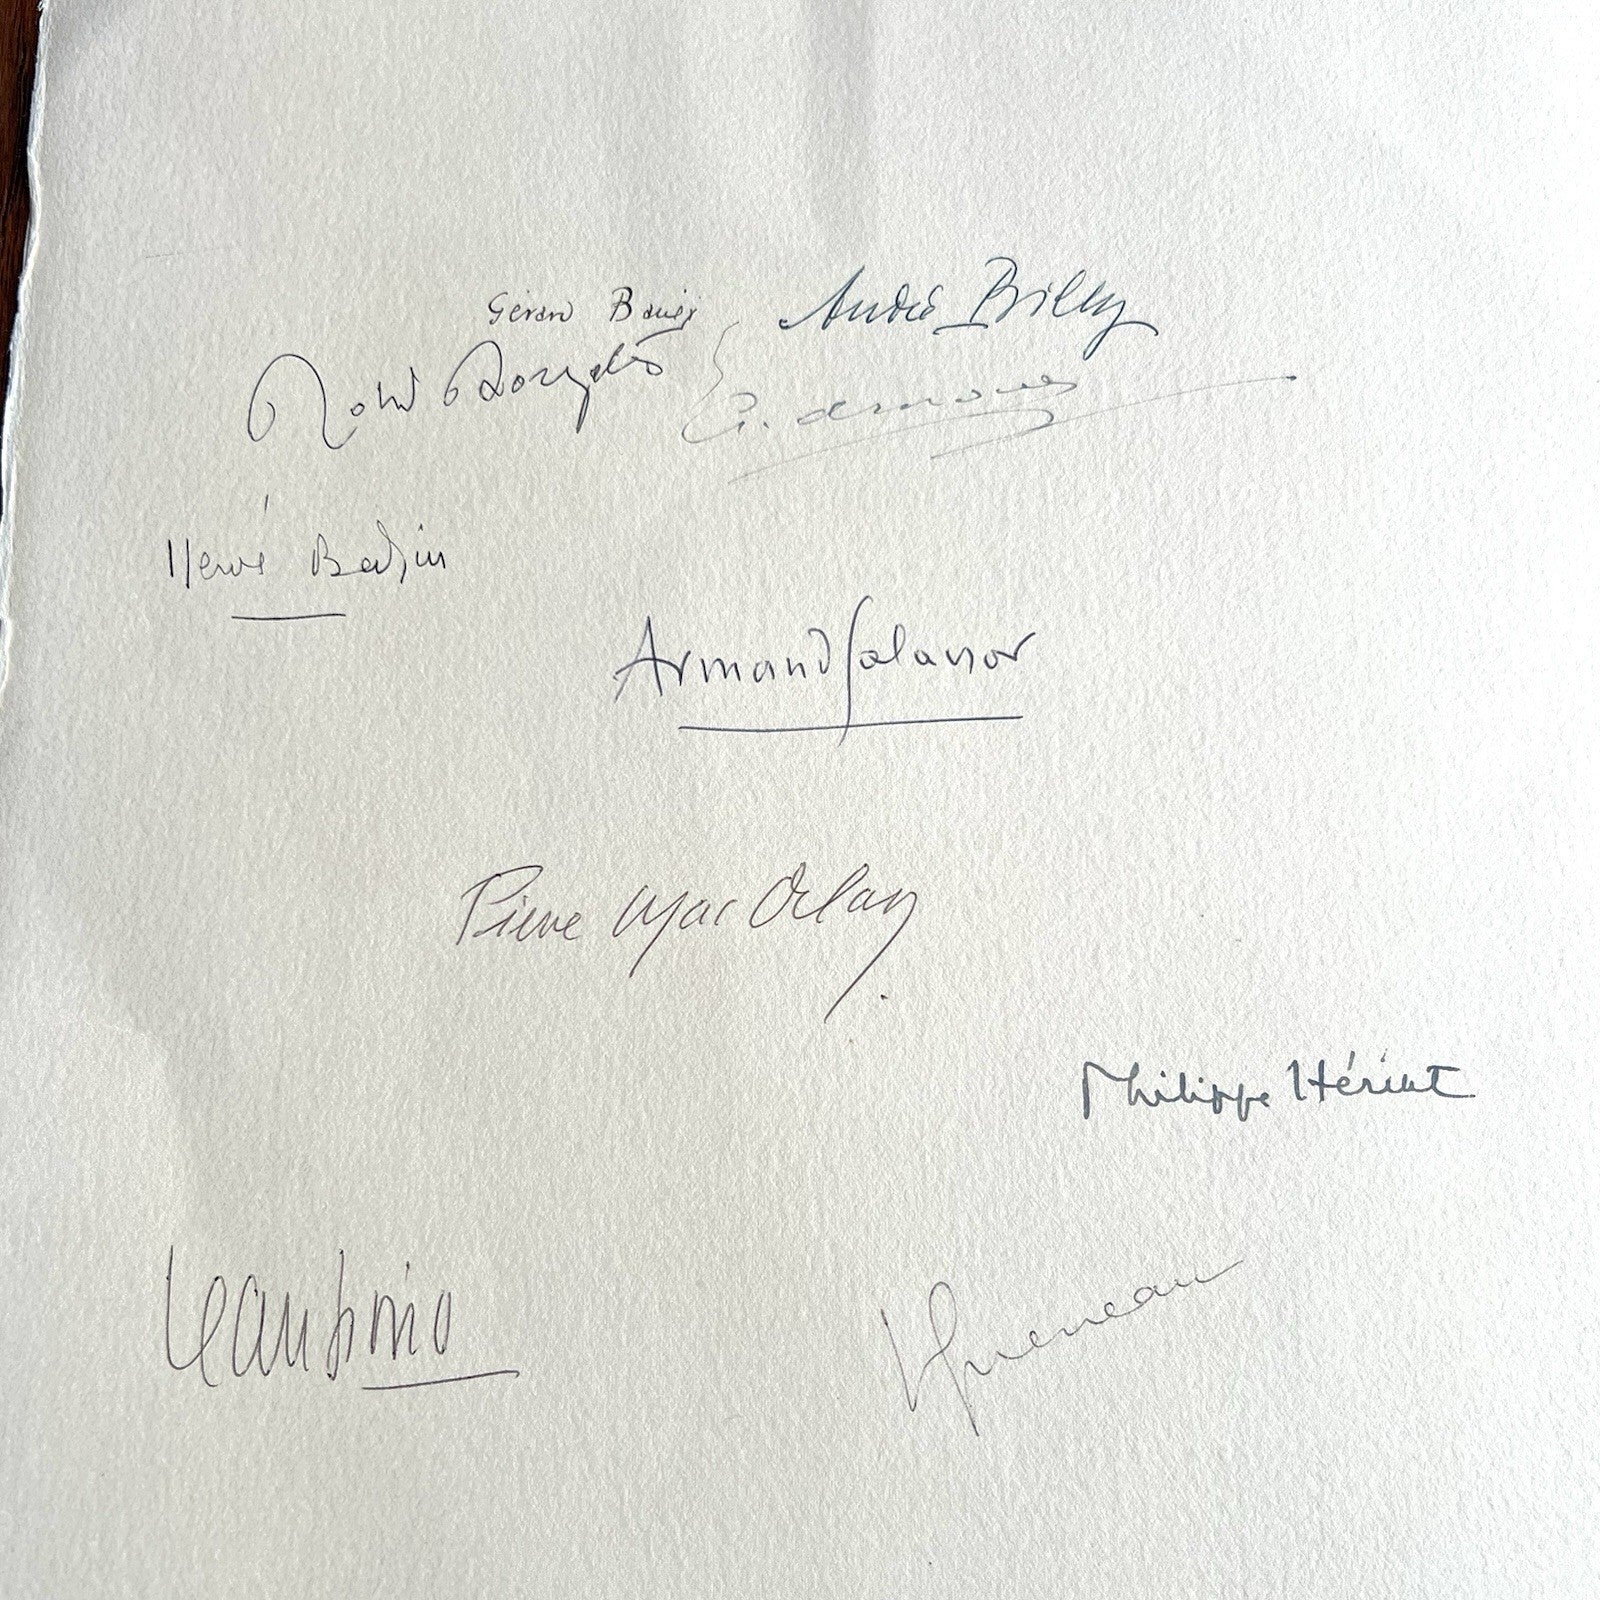 Gérard Bauër
André Billy
Roland Dorgelès
Hervé Bazin
Armand Salacrou
Pierre Mac Orlan
Philippe Hériat
Jean Giono
Queneau